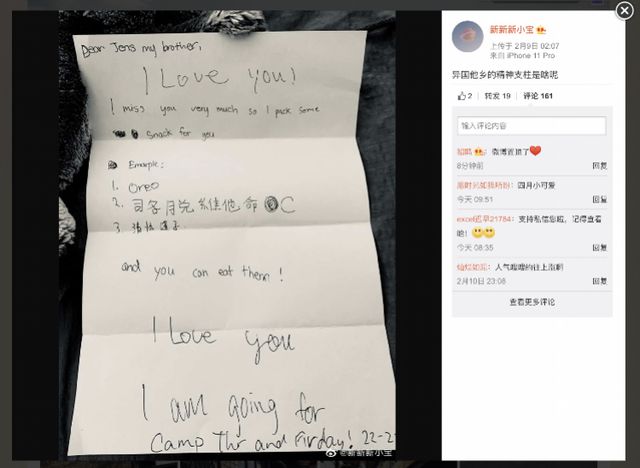 Dear Jens my brother,
I Love you!
I miss you very much so I pick some
snack for you
Emarple:
1. Oreo
2. 維他命 C
3.
and you can eat them!
I Love you
I am going for
Camp Thr and Firday! 22-2
@新新新小宝
新新新小宝
上传于 2月9日 02:07
来自 iPhone 11 Pro
异国他乡的精神支柱是啥呢
2 | 转发 19 | 评论 161
输入评论内容
：微博置顶了
8分钟前 回复
：四月小可爱
今天 09:51 回复
：支持私信您啦，记得查看
哈！
今天 08:35 回复
：人气噌噌的往上涨啊
2月10日 23:08 回复
查看更多评论